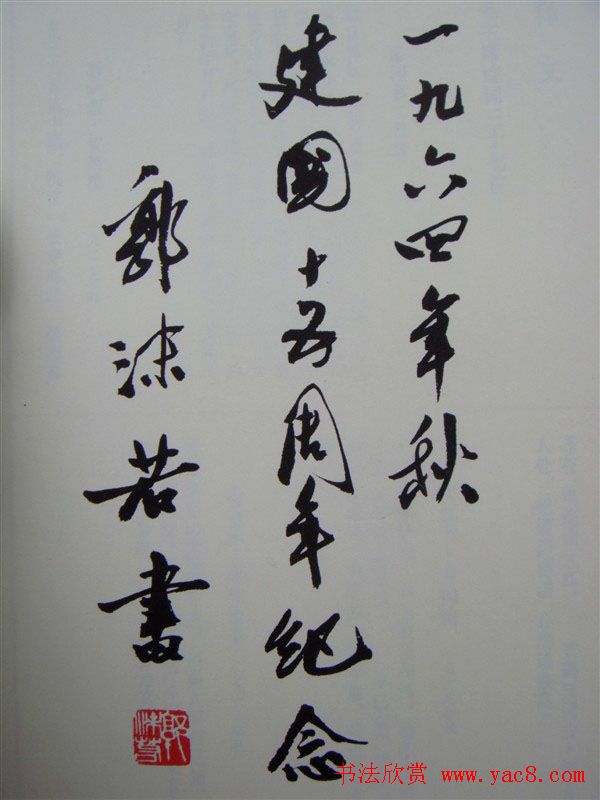 一九六四年秋
建國十五周年纪念
郭沫若書
郭沫若
书法欣赏 www.yac8.com